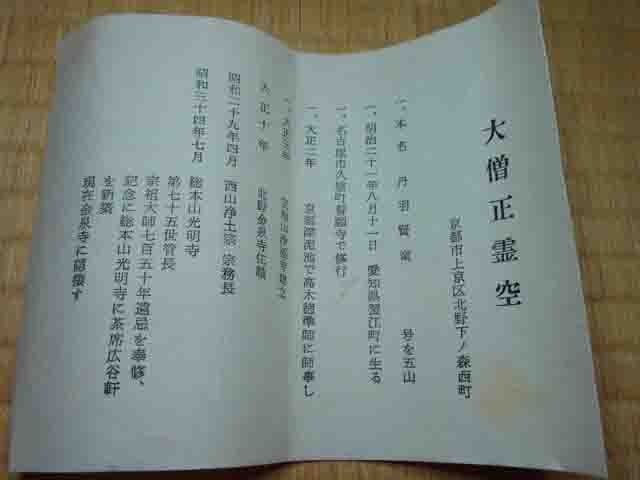 大僧正霊空
京都市上京区北野下ノ森西町
一、本名 丹羽賢 号を五山
一、明治二十一年八月十一日 愛知県蟹江町に生る
一、名古屋市久屋町誓願寺で修行
一、大正二年 京都深泥池で高木徳準師に師事し
一、大正三年
大正十年 北野金泉寺住職
昭和二十九年四月 西山浄土宗宗務長
昭和三十四年七月 総本山光明寺
第七十五世管長
宗祖大師七百五十年遠忌を奉修、
記念に総本山光明寺に茶席広谷軒
を新築
現在金泉寺に閑棲す